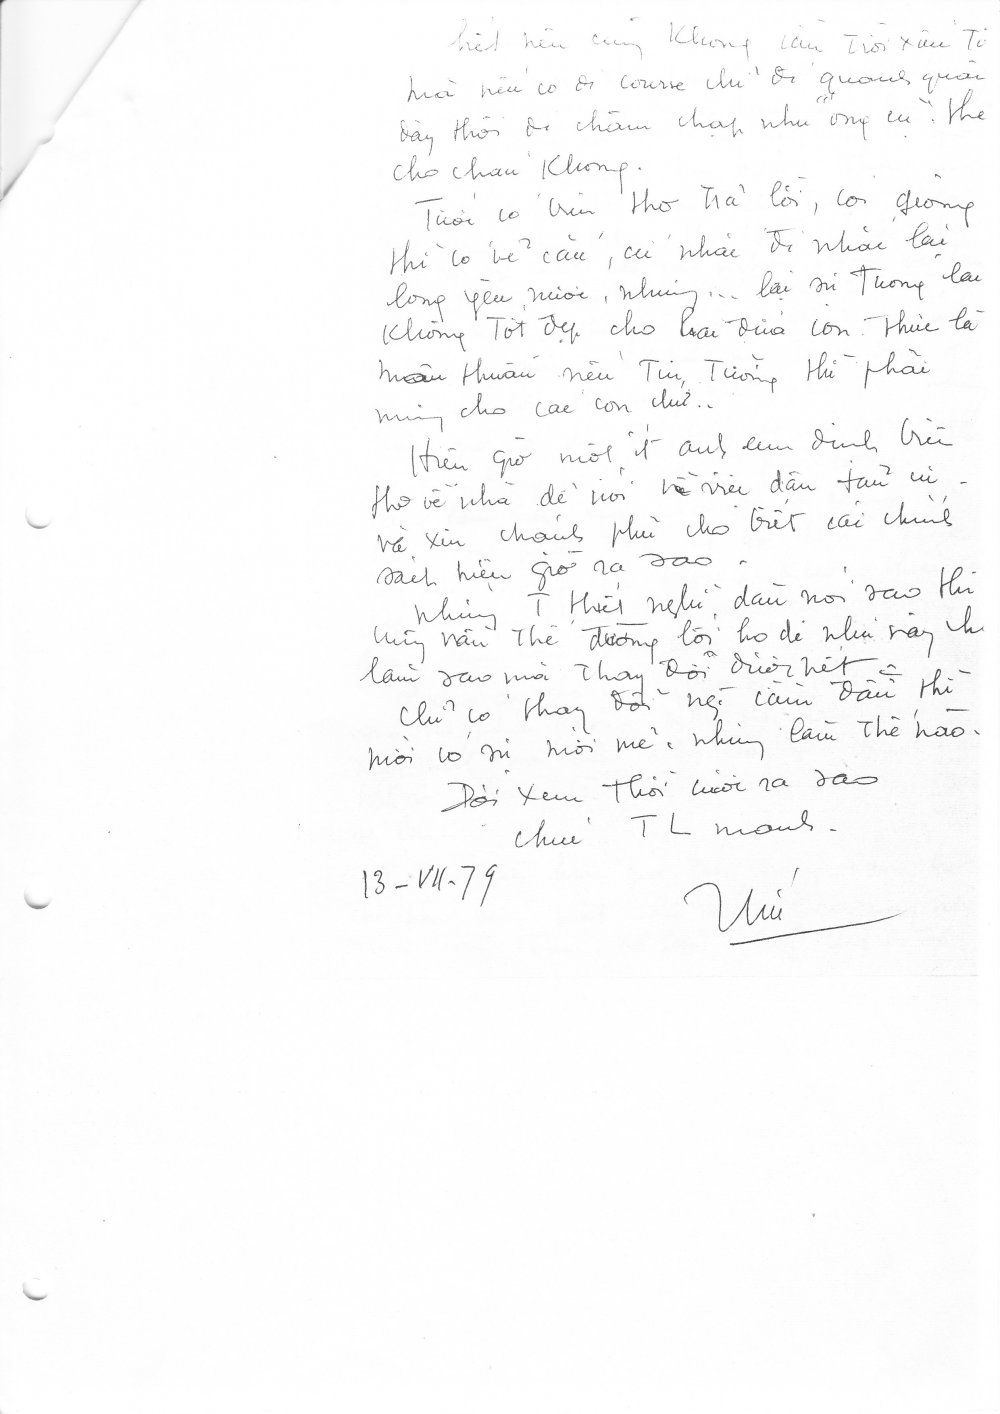 hết nên cũng không cần trời xấu Tỉ
mà nếu có đi course chỉ đi quanh quẩn
đây thôi đi chậm chạp như "ông cụ". thế
cho chau không.
Tuới có viết thơ trả lời, coi giọng
thì có vẻ cầu, cứ nhắc đi nhắc lại
lòng yêu nước, nhưng... lại sự tương lai
không tốt đẹp cho hai đứa con. thức là
mâu thuẫn nếu tin tưởng thì phải
mừng cho các con chứ..
Hiện giờ một ít anh em định viết
thơ về nhà để nói về việc dân tản cư.
và xin chánh phủ cho biết cái chính
sách hiện giờ ra sao.
Nhưng T thiết nghĩ, dầu nói sao thì
cũng vẫn thế đường lối họ đi như vậy thì
làm sao mà thay đổi được hết
chỉ có thay đổi ng. cầm đầu thì
mới có sự mới mẻ. nhưng làm thế nào.
Đợi xem thời cuộc ra sao
chúc T L mạnh.
13-VII-79